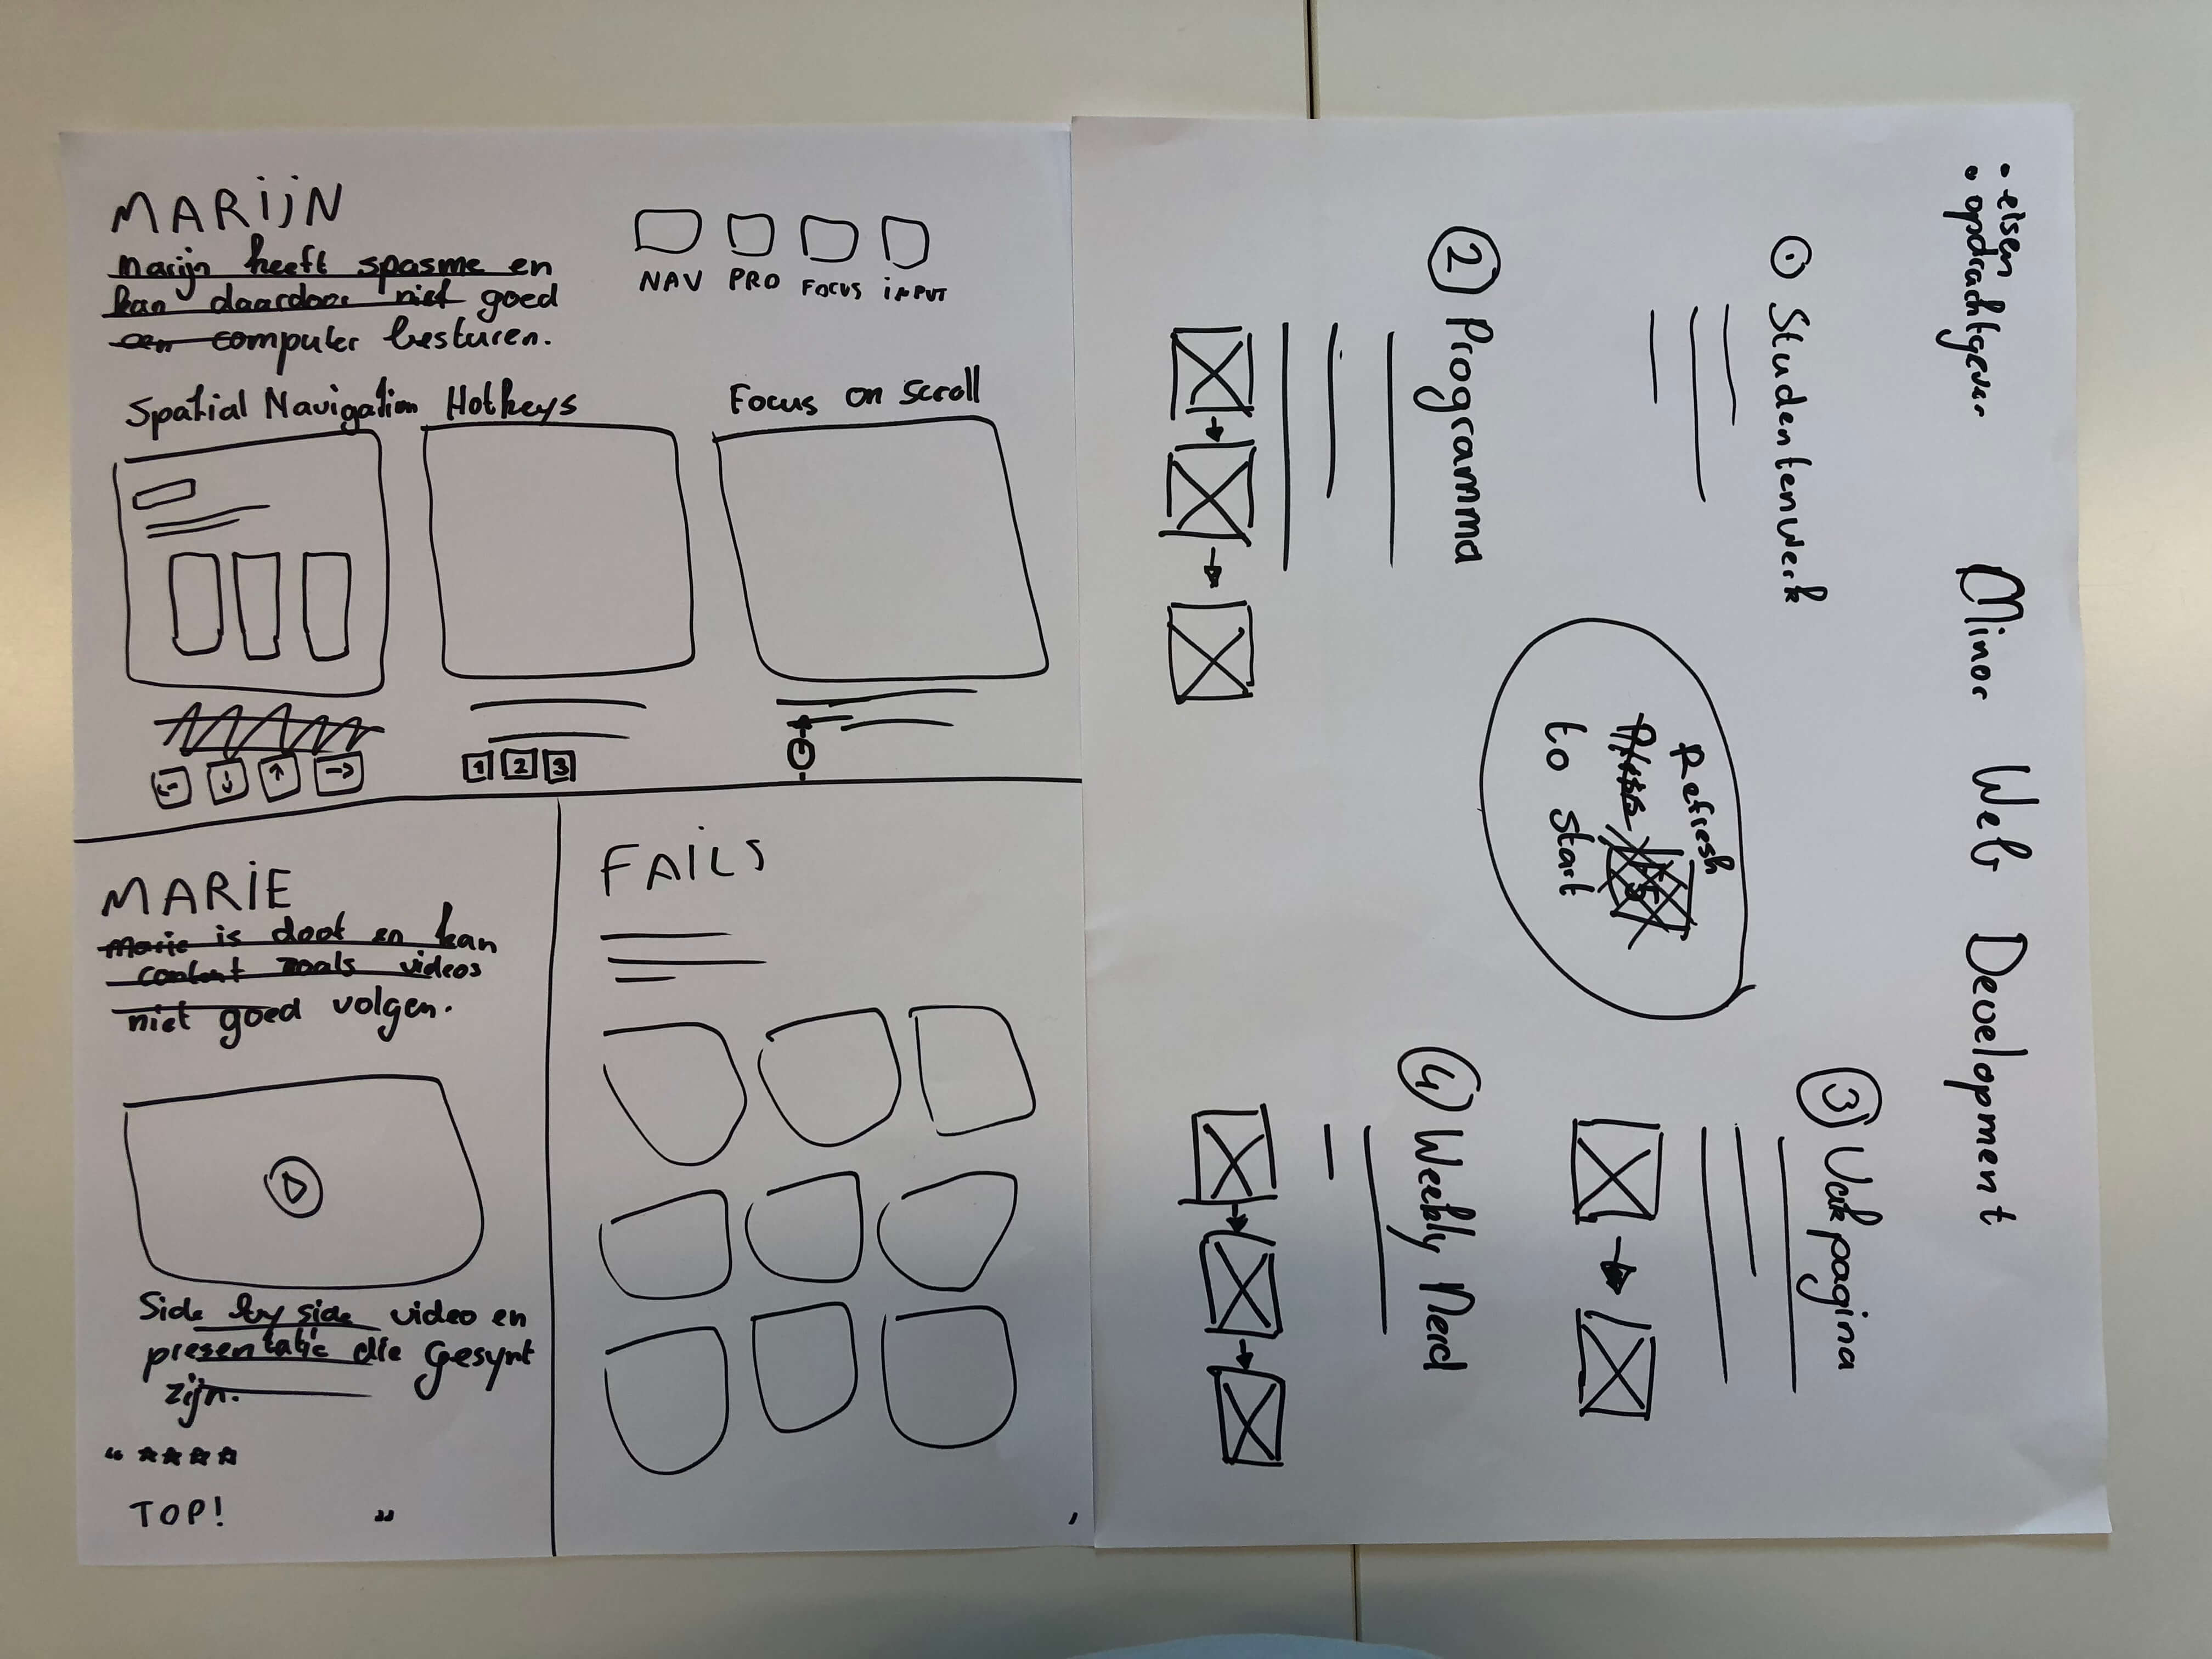 MARIJN
Marijn heeft spasme en
kan daardoor niet goed
een computer besturen.
NAV PRO FOCUS INPUT
Spatial Navigation
Hotkeys
Focus on scroll
← ↓ ↑ →
1 2 3
MARIE
Marie is doof en kan
content zoals videos
niet goed volgen.
Side by side video en
presentatie die Gesynt
zijn.
“ ★★★★
TOP!
”
FAILS
Minor Web Development
• eisen
• opdrachtgever
1 Studentenwerk
2 Programma
Refresh
to start
3 Vakpagina
4 Weekly Nerd